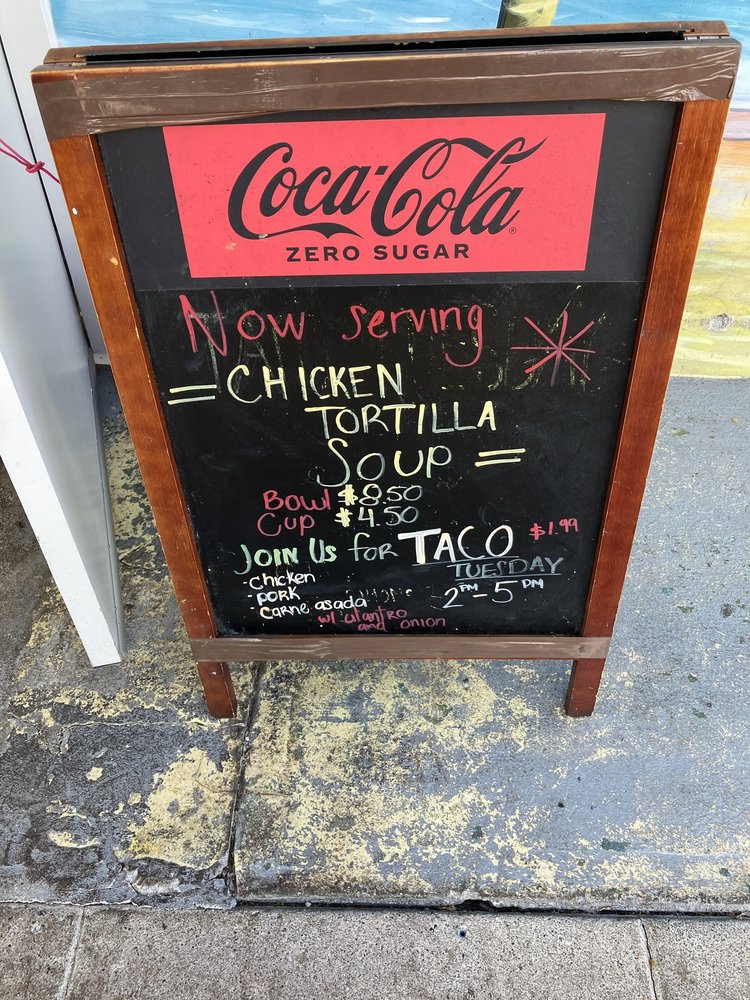 Coca-Cola®
ZERO SUGAR
Now serving
= CHICKEN
TORTILLA
SOUP =
Bowl $8.50
Cup $4.50
JOIN Us for TACO $1.99
TUESDAY
• chicken
• pork
• carne asada
2PM - 5PM
w/ cilantro
and onion